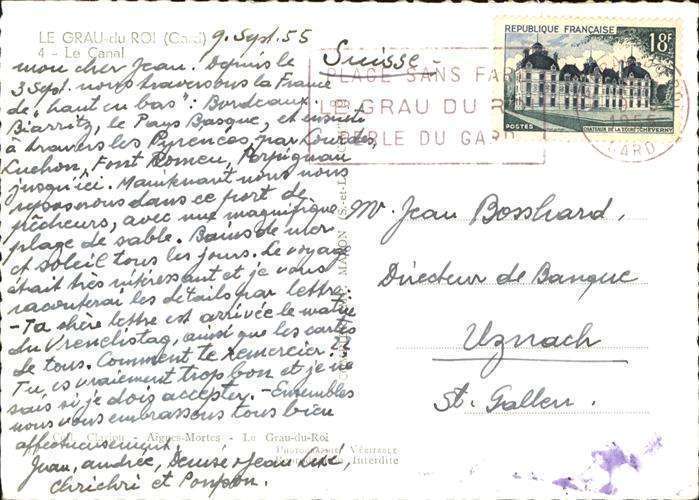 LE GRAU-du-ROI (Gard)
4 - Le Canal
9. Sept. 55
Suisse
mon cher Jean. Depuis le
3 Sept. nous traversons la France
de "haut en bas": Bordeaux,
Biarritz, le Pays Basque, et ensuite
à travers les Pyrénées, par Lourdes,
Luchon, Font Romeu, Perpignan
jusqu'ici. Maintenant nous nous
reposerons dans ce port de
pêcheurs, avec une magnifique
plage de sable. Bains de mer
et soleil tous les jours. Le voyage
était très intéressant et je vous
raconterai les détails par lettre.
- Ta chère lettre est arrivée le matin
du Vrenelistag, ainsi que les cartes
de tous. Comment te remercier?
Tu es vraiment trop bon et je ne
sais si je dois accepter. - Ensembles
nous vous embrassons tous bien
affectueusement.
Jean, andrée, Denise
Chrichri et Pompon.
Aigues-Mortes - Le Grau-du-Roi
Photographie Véritable
Interdite
MACON (S.-et-L.)
RÉPUBLIQUE FRANÇAISE
18F
POSTES
CHATEAUX DE LA LOIRE : CHEVERNY
PLAGE SANS
LE GRAU DU R
PERLE DU GARD
GARD
Mr. Jean Bosshard,
Directeur de Banque
Uznach
St. Gallen.